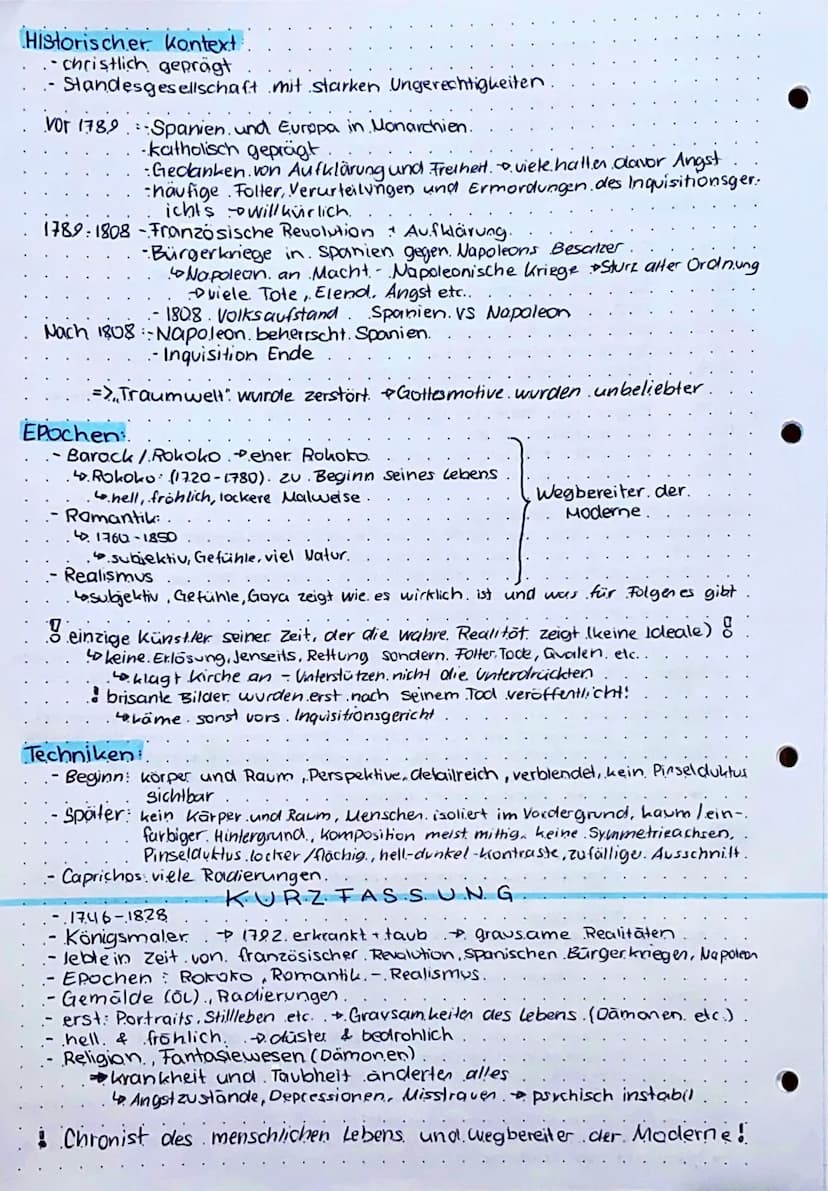 Historischer Kontext
- christlich geprägt
- Standesgesellschaft mit starken Ungerechtigkeiten
Vor 1789 :- Spanien und Europa in Monarchien
- katholisch geprägt
- Gedanken von Aufklärung und Freiheit → viele hatten davor Angst
- häufige Folter, Verurteilungen und Ermordungen des Inquisitionsger-
ichts → willkürlich
1789-1808 - Französische Revolution + Aufklärung
- Bürgerkriege in Spanien gegen Napoleons Besatzer
↳ Napoleon an Macht - Napoleonische Kriege → Sturz alter Ordnung
→ viele Tote, Elend, Angst etc.
- 1808 Volksaufstand Spanien vs Napoleon
Nach 1808 :- Napoleon beherrscht Spanien
- Inquisition Ende
=> „Traumwelt" wurde zerstört → Gottesmotive wurden unbeliebter
Epochen:
- Barock / Rokoko → eher Rokoko
↳ Rokoko: (1720-1780) zu Beginn seines Lebens
↳ hell, fröhlich, lockere Malweise
Wegbereiter der
Moderne
- Romantik:
↳ 1760-1850
↳ subjektiv, Gefühle, viel Natur
- Realismus
↳ subjektiv, Gefühle, Goya zeigt wie es wirklich ist und was für Folgen es gibt
! einzige Künstler seiner Zeit, der die wahre Realität zeigt (keine Ideale) !
↳ keine Erlösung, Jenseits, Rettung sondern Folter, Tode, Qualen etc.
↳ klagt Kirche an - Unterstützen nicht die Unterdrückten
! brisante Bilder wurden erst nach seinem Tod veröffentlicht!
↳ käme sonst vors Inquisitionsgericht
Techniken:
- Beginn: Körper und Raum, Perspektive, detailreich, verblendet, kein Pinselduktus
sichtbar
- Später: kein Körper und Raum, Menschen isoliert im Vordergrund, kaum / ein-
farbiger Hintergrund, Komposition meist mittig, keine Symmetrieachsen,
Pinselduktus locker / flächig, hell-dunkel-Kontraste, zufällige Ausschnitt
- Caprichos: viele Radierungen
KURZFASSUNG
- 1746-1828
- Königsmaler → 1792 erkrankt + taub → grausame Realitäten
- lebte in Zeit von französischer Revolution, Spanischen Bürgerkriegen, Napoleon
- Epochen : Rokoko, Romantik - Realismus
- Gemälde (Öl), Radierungen
- erst: Portraits, Stillleben etc. → Grausamkeiten des Lebens (Dämonen etc.)
- hell & fröhlich → düster & bedrohlich
- Religion, Fantasiewesen (Dämonen)
→ Krankheit und Taubheit änderten alles
↳ Angstzustände, Depressionen, Misstrauen → psychisch instabil
! Chronist des menschlichen Lebens und Wegbereiter der Moderne!